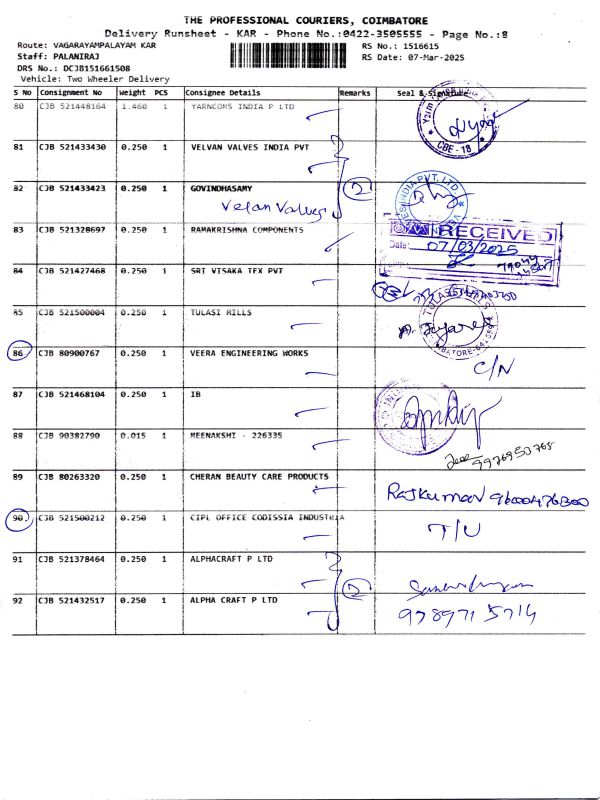 THE PROFESSIONAL COURIERS, COIMBATORE
Delivery Runsheet - KAR - Phone No.:0422-3505555 - Page No.:8
Route: VAGARAYAMPALAYAM KAR
RS No.: 1516615
Staff: PALANIRAJ
RS Date: 07-Mar-2025
DRS No.: DCJB151661508
Vehicle: Two Wheeler Delivery
S No Consignment No Weight PCS Consignee Details Remarks Seal &
80 CJB 521448164 1.460 1 YARNCOMS INDIA P LTD
CBE - 18
81 CJB 521433430 0.250 1 VELVAN VALVES INDIA PVT
82 CJB 521433423 0.250 1 GOVINDHASAMY 2
Velan Valves
83 CJB 521328697 0.250 1 RAMAKRISHNA COMPONENTS
RECEIVED
Date: 07/03/2025
84 CJB 521427468 0.250 1 SRI VISAKA TEX PVT
85 CJB 521500004 0.250 1 TULASI MILLS
86 CJB 80900767 0.250 1 VEERA ENGINEERING WORKS
C/N
87 CJB 521468104 0.250 1 IB
88 CJB 90382790 0.015 1 MEENAKSHI - 226335
9976953765
89 CJB 80263320 0.250 1 CHERAN BEAUTY CARE PRODUCTS
Rajkumar 9600476300
90 CJB 521500212 0.250 1 CIPL OFFICE CODISSIA INDUSTRIA
T/U
91 CJB 521378464 0.250 1 ALPHACRAFT P LTD
2
92 CJB 521432517 0.250 1 ALPHA CRAFT P LTD
9789715714